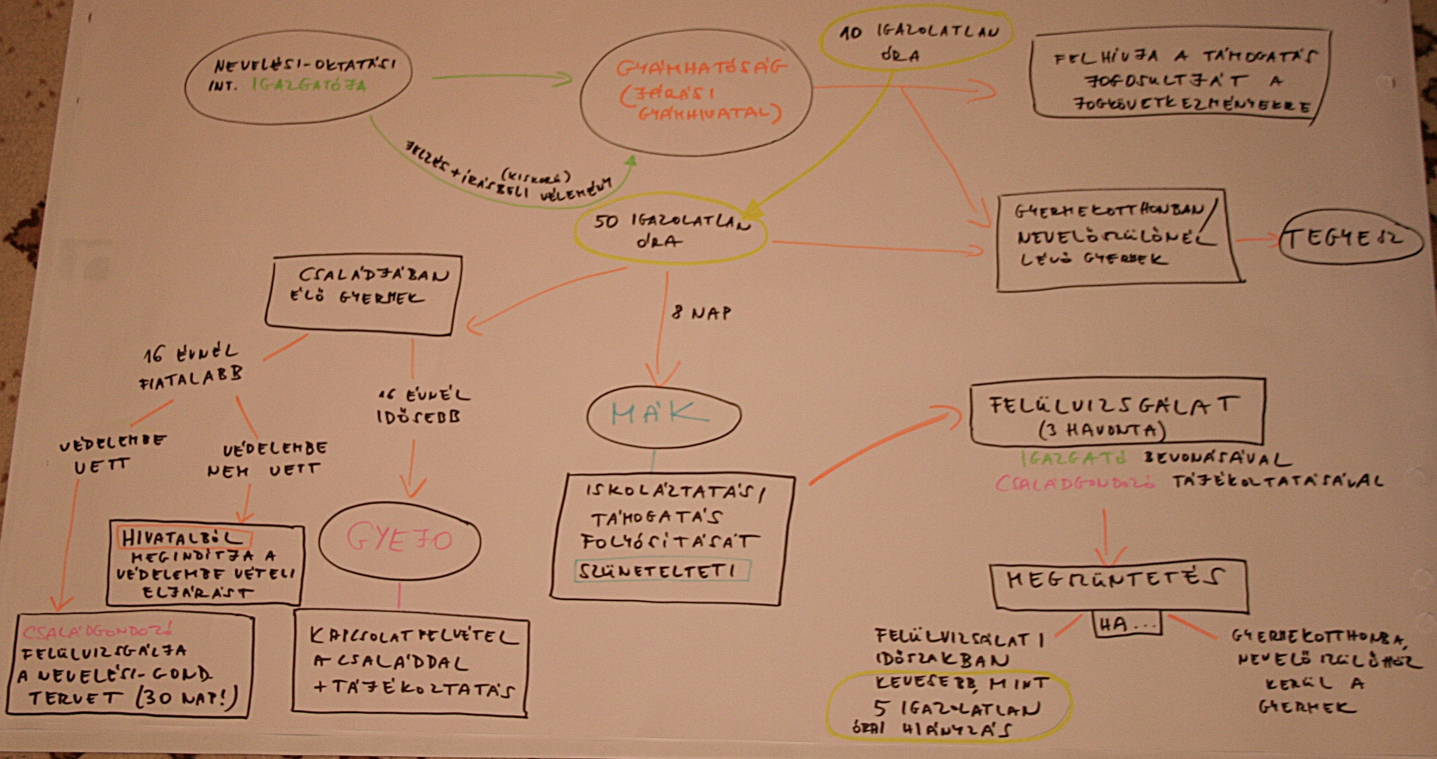 NEVELÉSI-OKTATÁSI
INT. IGAZGATÓJA
GYÁMHATÓSÁG
(JÁRÁSI
GYÁMHIVATAL)
10 IGAZOLATLAN
ÓRA
FELHÍVJA A TÁMOGATÁS
JOGOSULTJÁT A
JOGKÖVETKEZMÉNYEKRE
JELZÉS + ÍRÁSBELI VÉLEMÉNY
(KISKORÚ)
50 IGAZOLATLAN
ÓRA
GYERMEKOTTHONBAN/
NEVELŐSZÜLŐNÉL
LÉVŐ GYERMEK
TEGYESZ
CSALÁDJÁBAN
ÉLŐ GYERMEK
8 NAP
16 ÉVNÉL
FIATALABB
16 ÉVNÉL
IDŐSEBB
MÁK
FELÜLVIZSGÁLAT
(3 HAVONTA)
IGAZGATÓ BEVONÁSÁVAL
CSALÁDGONDOZÓ TÁJÉKOZTATÁSÁVAL
VÉDELEMBE
VETT
VÉDELEMBE
NEM VETT
ISKOLÁZTATÁSI
TÁMOGATÁS
FOLYÓSÍTÁSÁT
SZÜNETELTETI
HIVATALBÓL
MEGINDÍTJA A
VÉDELEMBE VÉTELI
ELJÁRÁST
GYEJO
MEGSZÜNTETÉS
HA...
CSALÁDGONDOZÓ
FELÜLVIZSGÁLJA
A NEVELÉSI-GOND.
TERVET (30 NAP!)
KAPCSOLATFELVÉTEL
A CSALÁDDAL
+ TÁJÉKOZTATÁS
FELÜLVIZSÁLATI
IDŐSZAKBAN
KEVESEBB, MINT
5 IGAZOLATLAN
ÓRAI HIÁNYZÁS
GYERMEKOTTHONBA,
NEVELŐSZÜLŐHÖZ
KERÜL A
GYERMEK